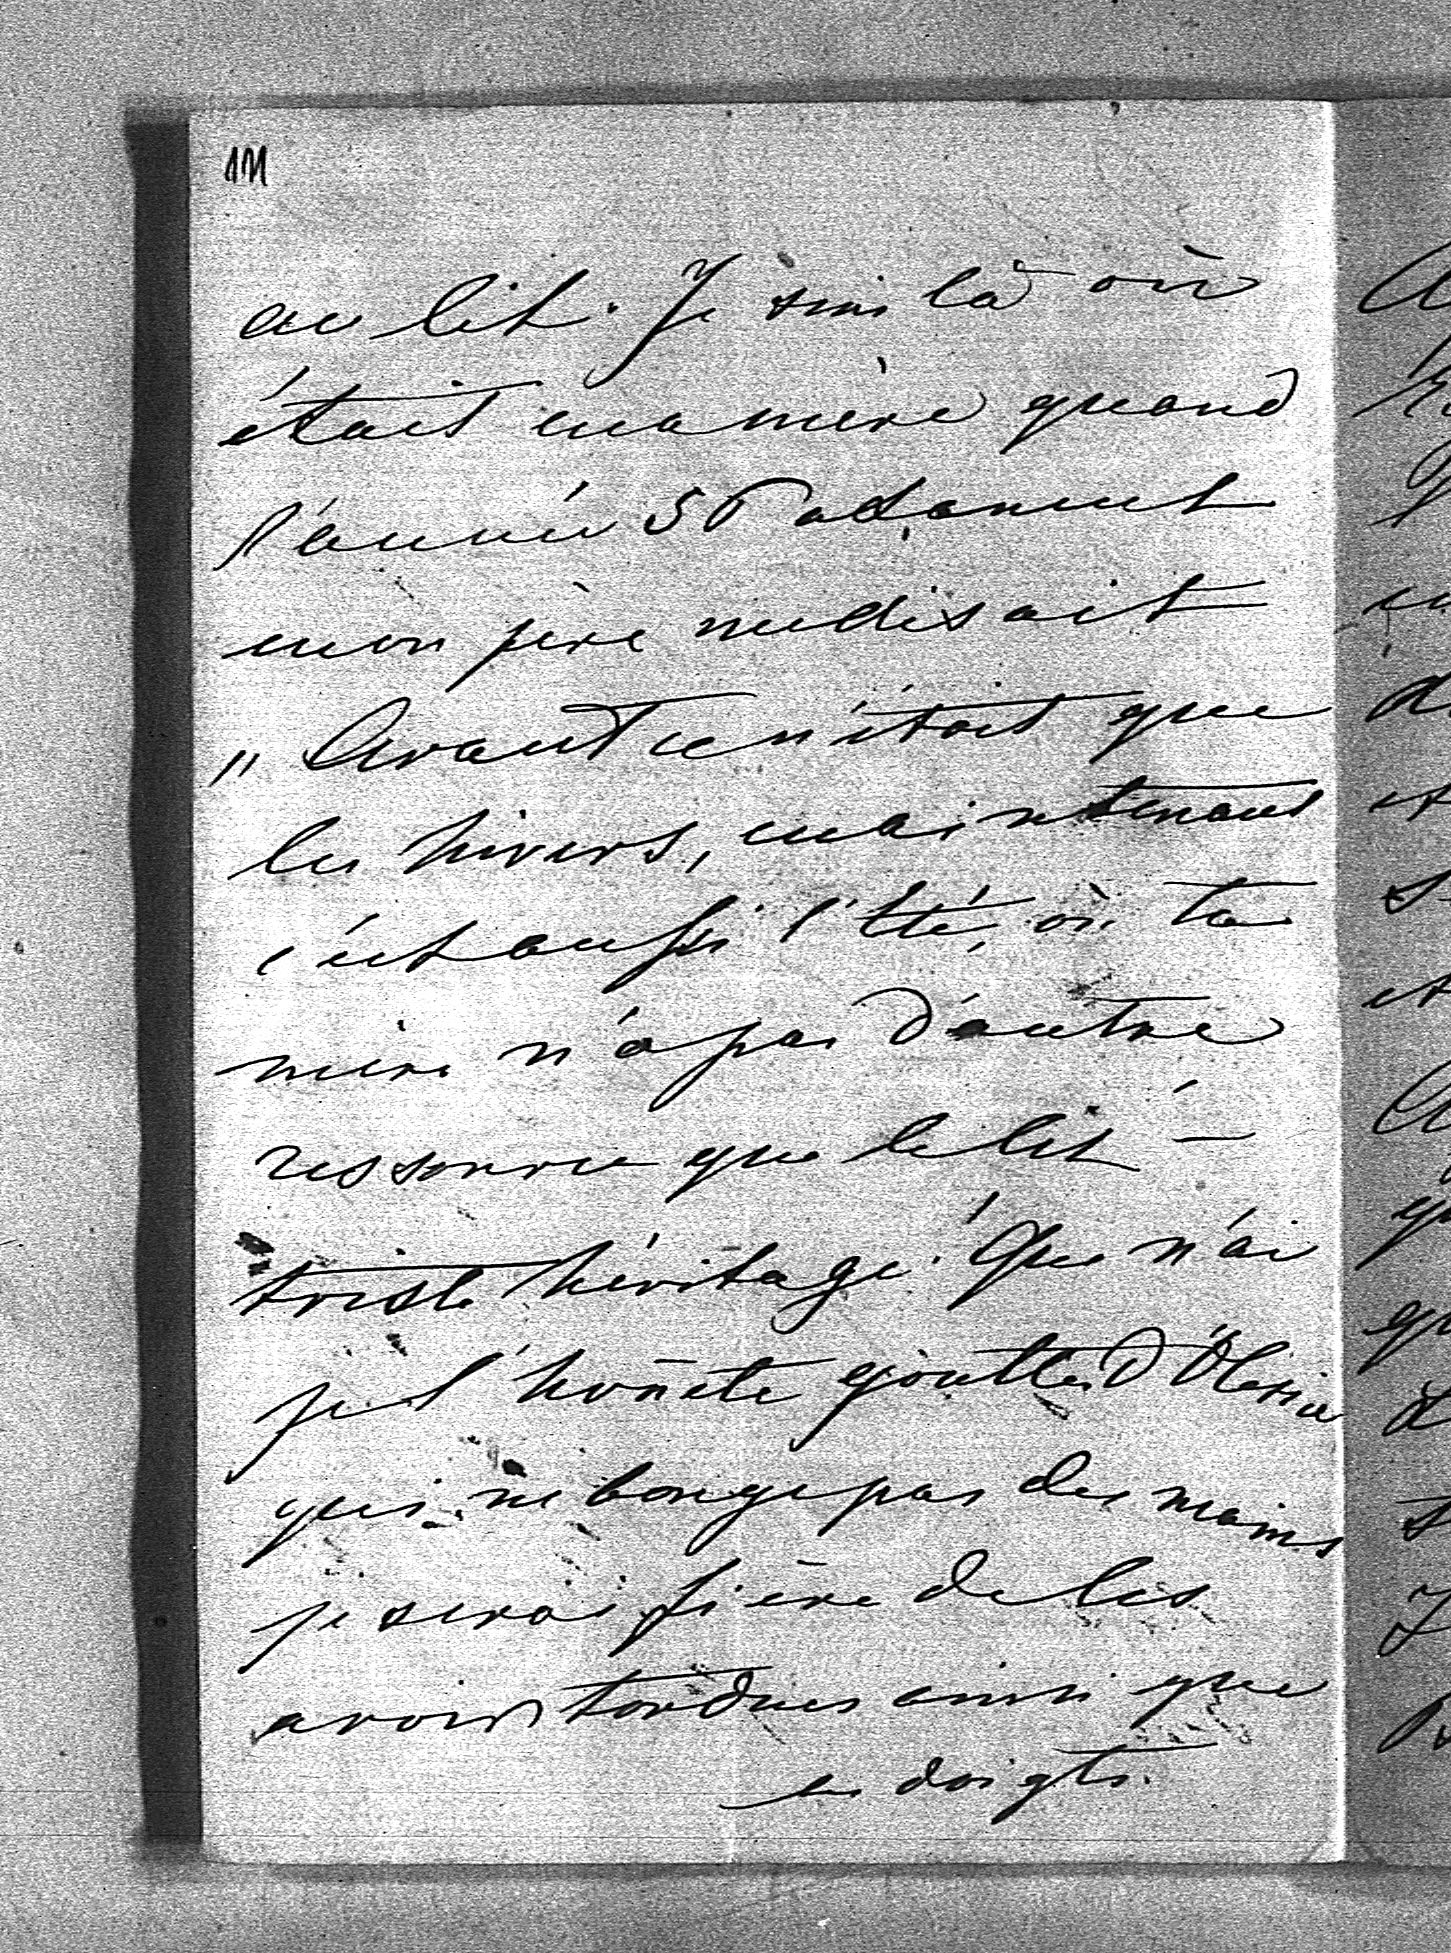 au lit. Je suis là où
était ma mère quand
l'année 50
mon père me disait
„ Avant ce n'était que
les hivers, maintenant
c'est aussi l'été, où ta
mère n'a pas d'autre
ressource que le lit —
triste héritage! Que n'ai
je l'honête goutte d'Olesia
qui ne bouge pas des mains
je serais fière de les
avoir tordues ainsi que
les doigts.